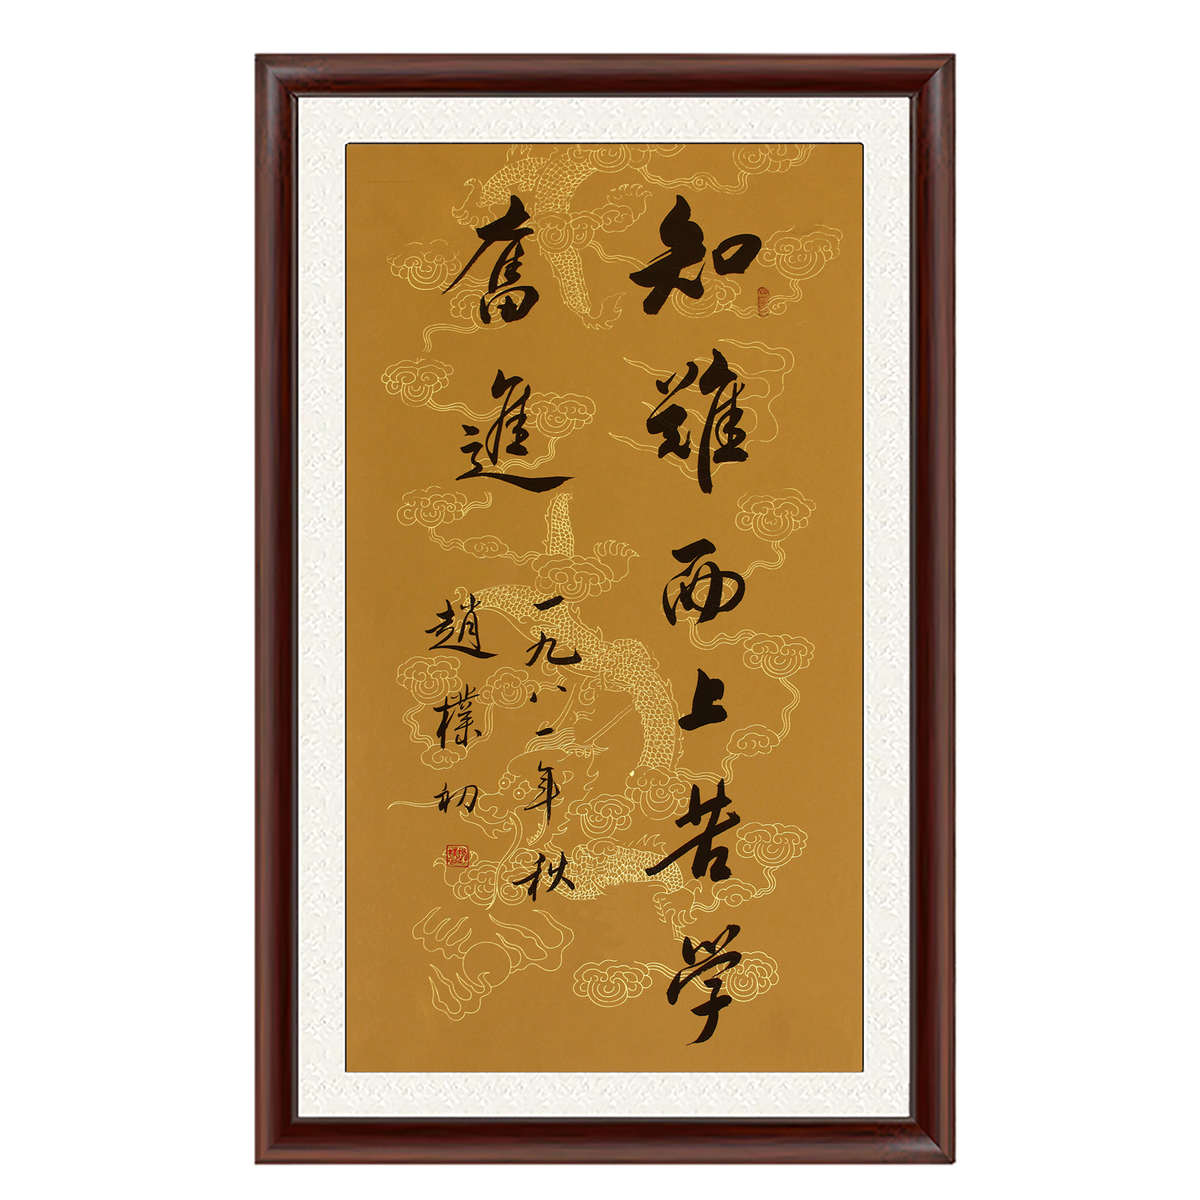 知难而上苦学
奮進
一九八一年秋
趙樸初